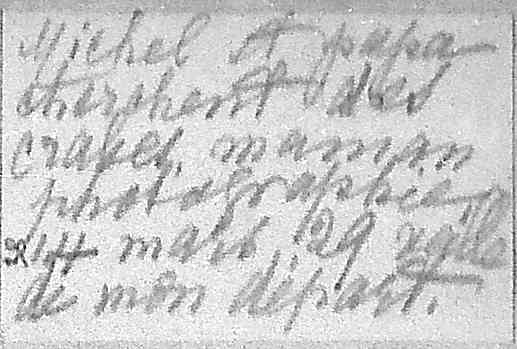 Michel et papa
cherchent des
crabes, maman
photographie
14 mars 29 veille
de mon départ.